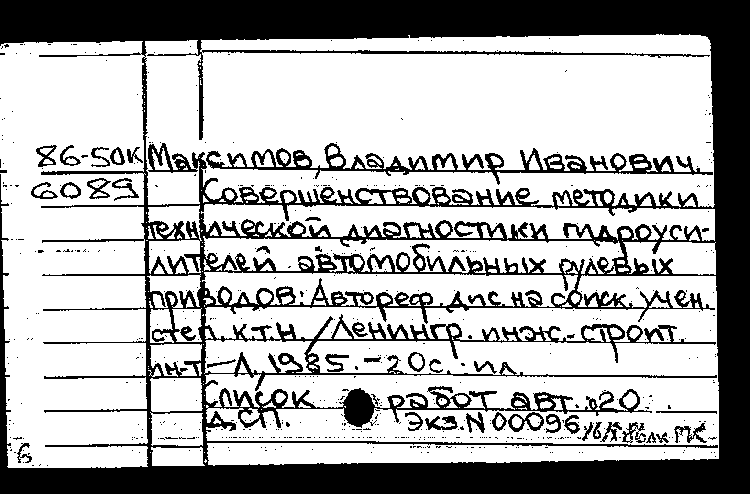 86-50К Максимов, Владимир Иванович.
6089 Совершенствование методики
технической диагностики гидроуси-
лителей автомобильных рулевых
приводов: Автореф. дис. на соиск. учен.
степ. к.т.н. /Ленингр. инж.-строит.
ин-т.-Л., 1985. - 20с.: ил.
Список работ авт.: 20
ДСП. Экз.N 00096
6